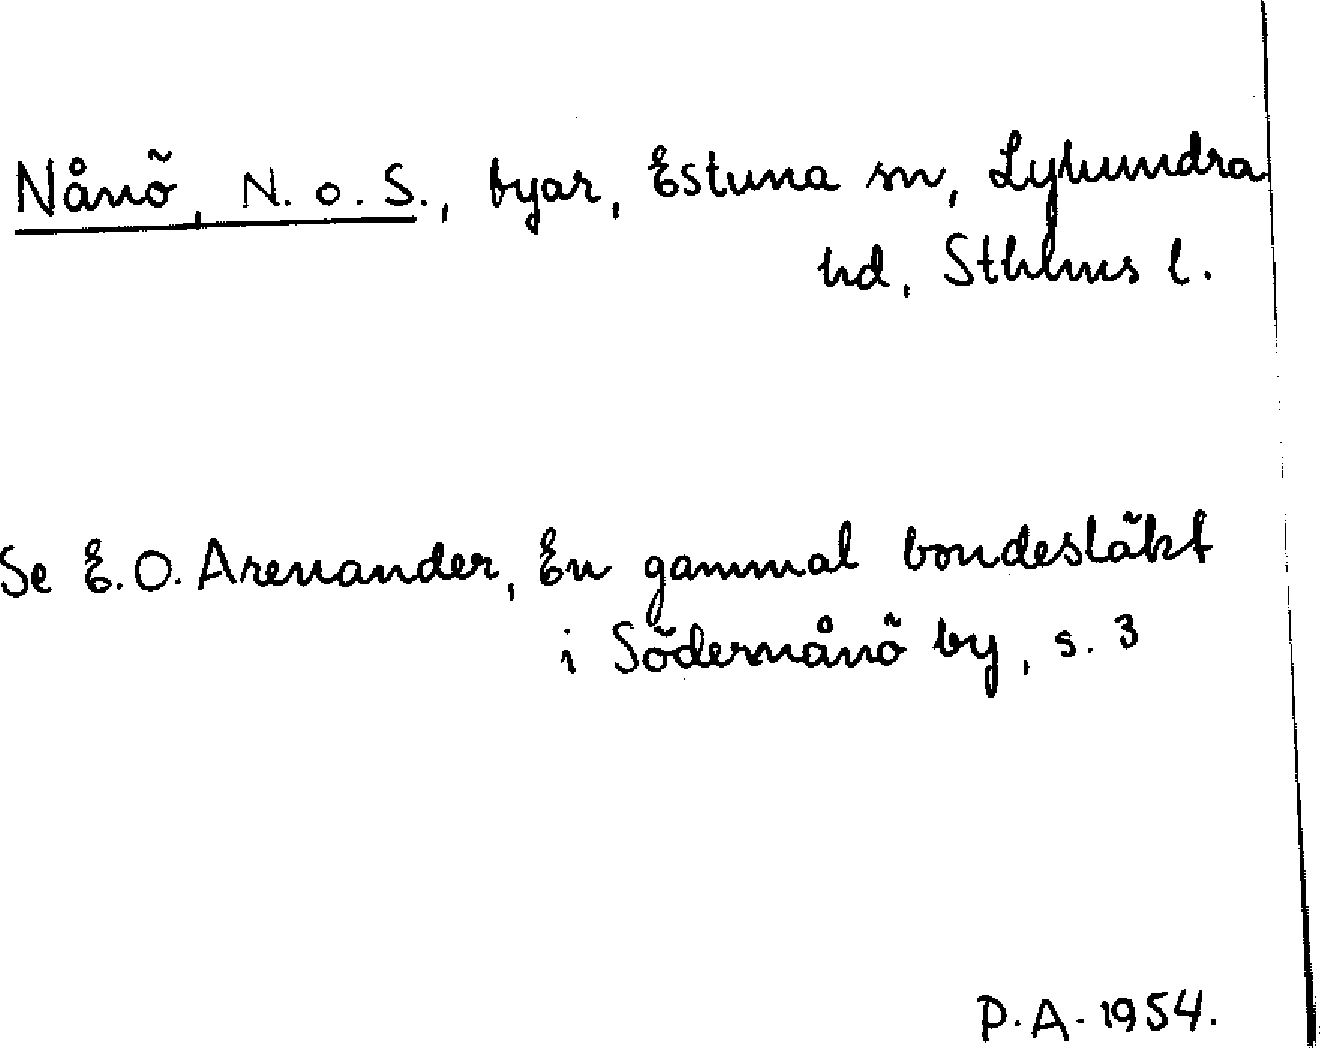 Nånö, N. o. S., byar, Estuna sn, Lyhundra
hd, Sthlms l.
Se E. O. Arenander, En gammal bondesläkt
i Södernånö by, s. 3
P. A. 1954.